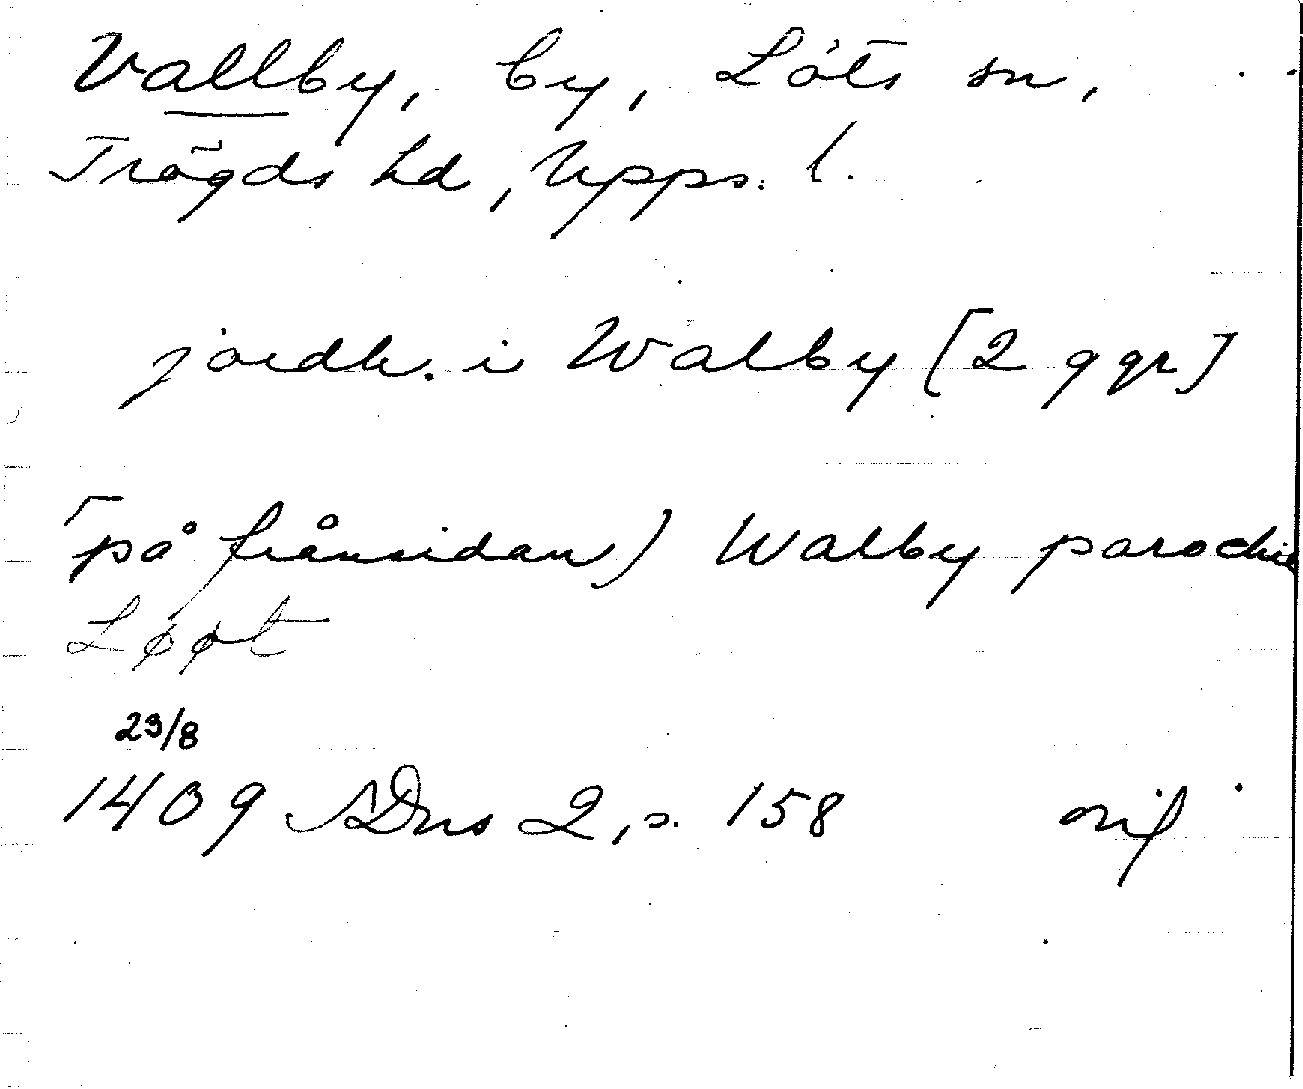 Vallby, by, Löts sn,
Trögds hd, Upps. l.
jordh. i Walby [2 ggr]
[på frånsidan) Walby parochie
Løøt
23/8
1409 SDns 2, s. 158 orig